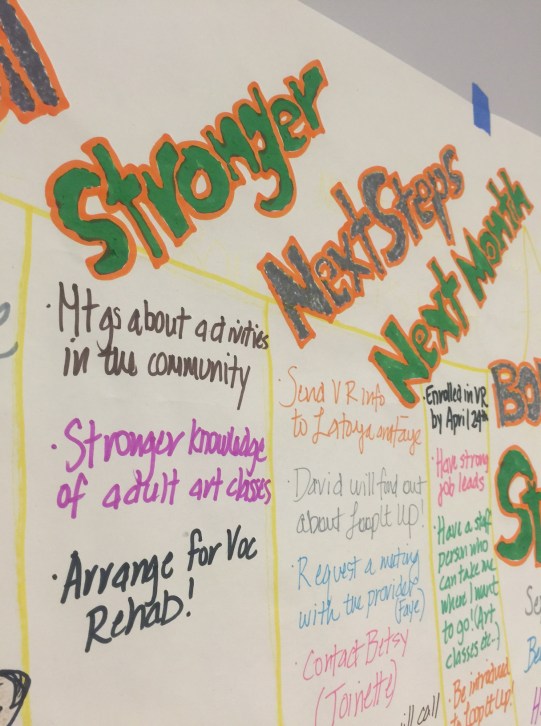 Stronger
· Mtgs about activities
in the community
· Stronger knowledge
of adult art classes
· Arrange for Voc
Rehab!
Next Steps
· Send VR info
to Latoya and Faye
· David will find out
about Loop It Up!
· Request a meeting
with the provider
(Faye)
· Contact Betsy
(Toinette)
call
Next Month
· Enrolled in VR
by April 24th
· Have strong
job leads
· Have a staff
person who
can take me
where I want
to go! (Art
classes etc-)
· Be introduced
to Loop It Up!